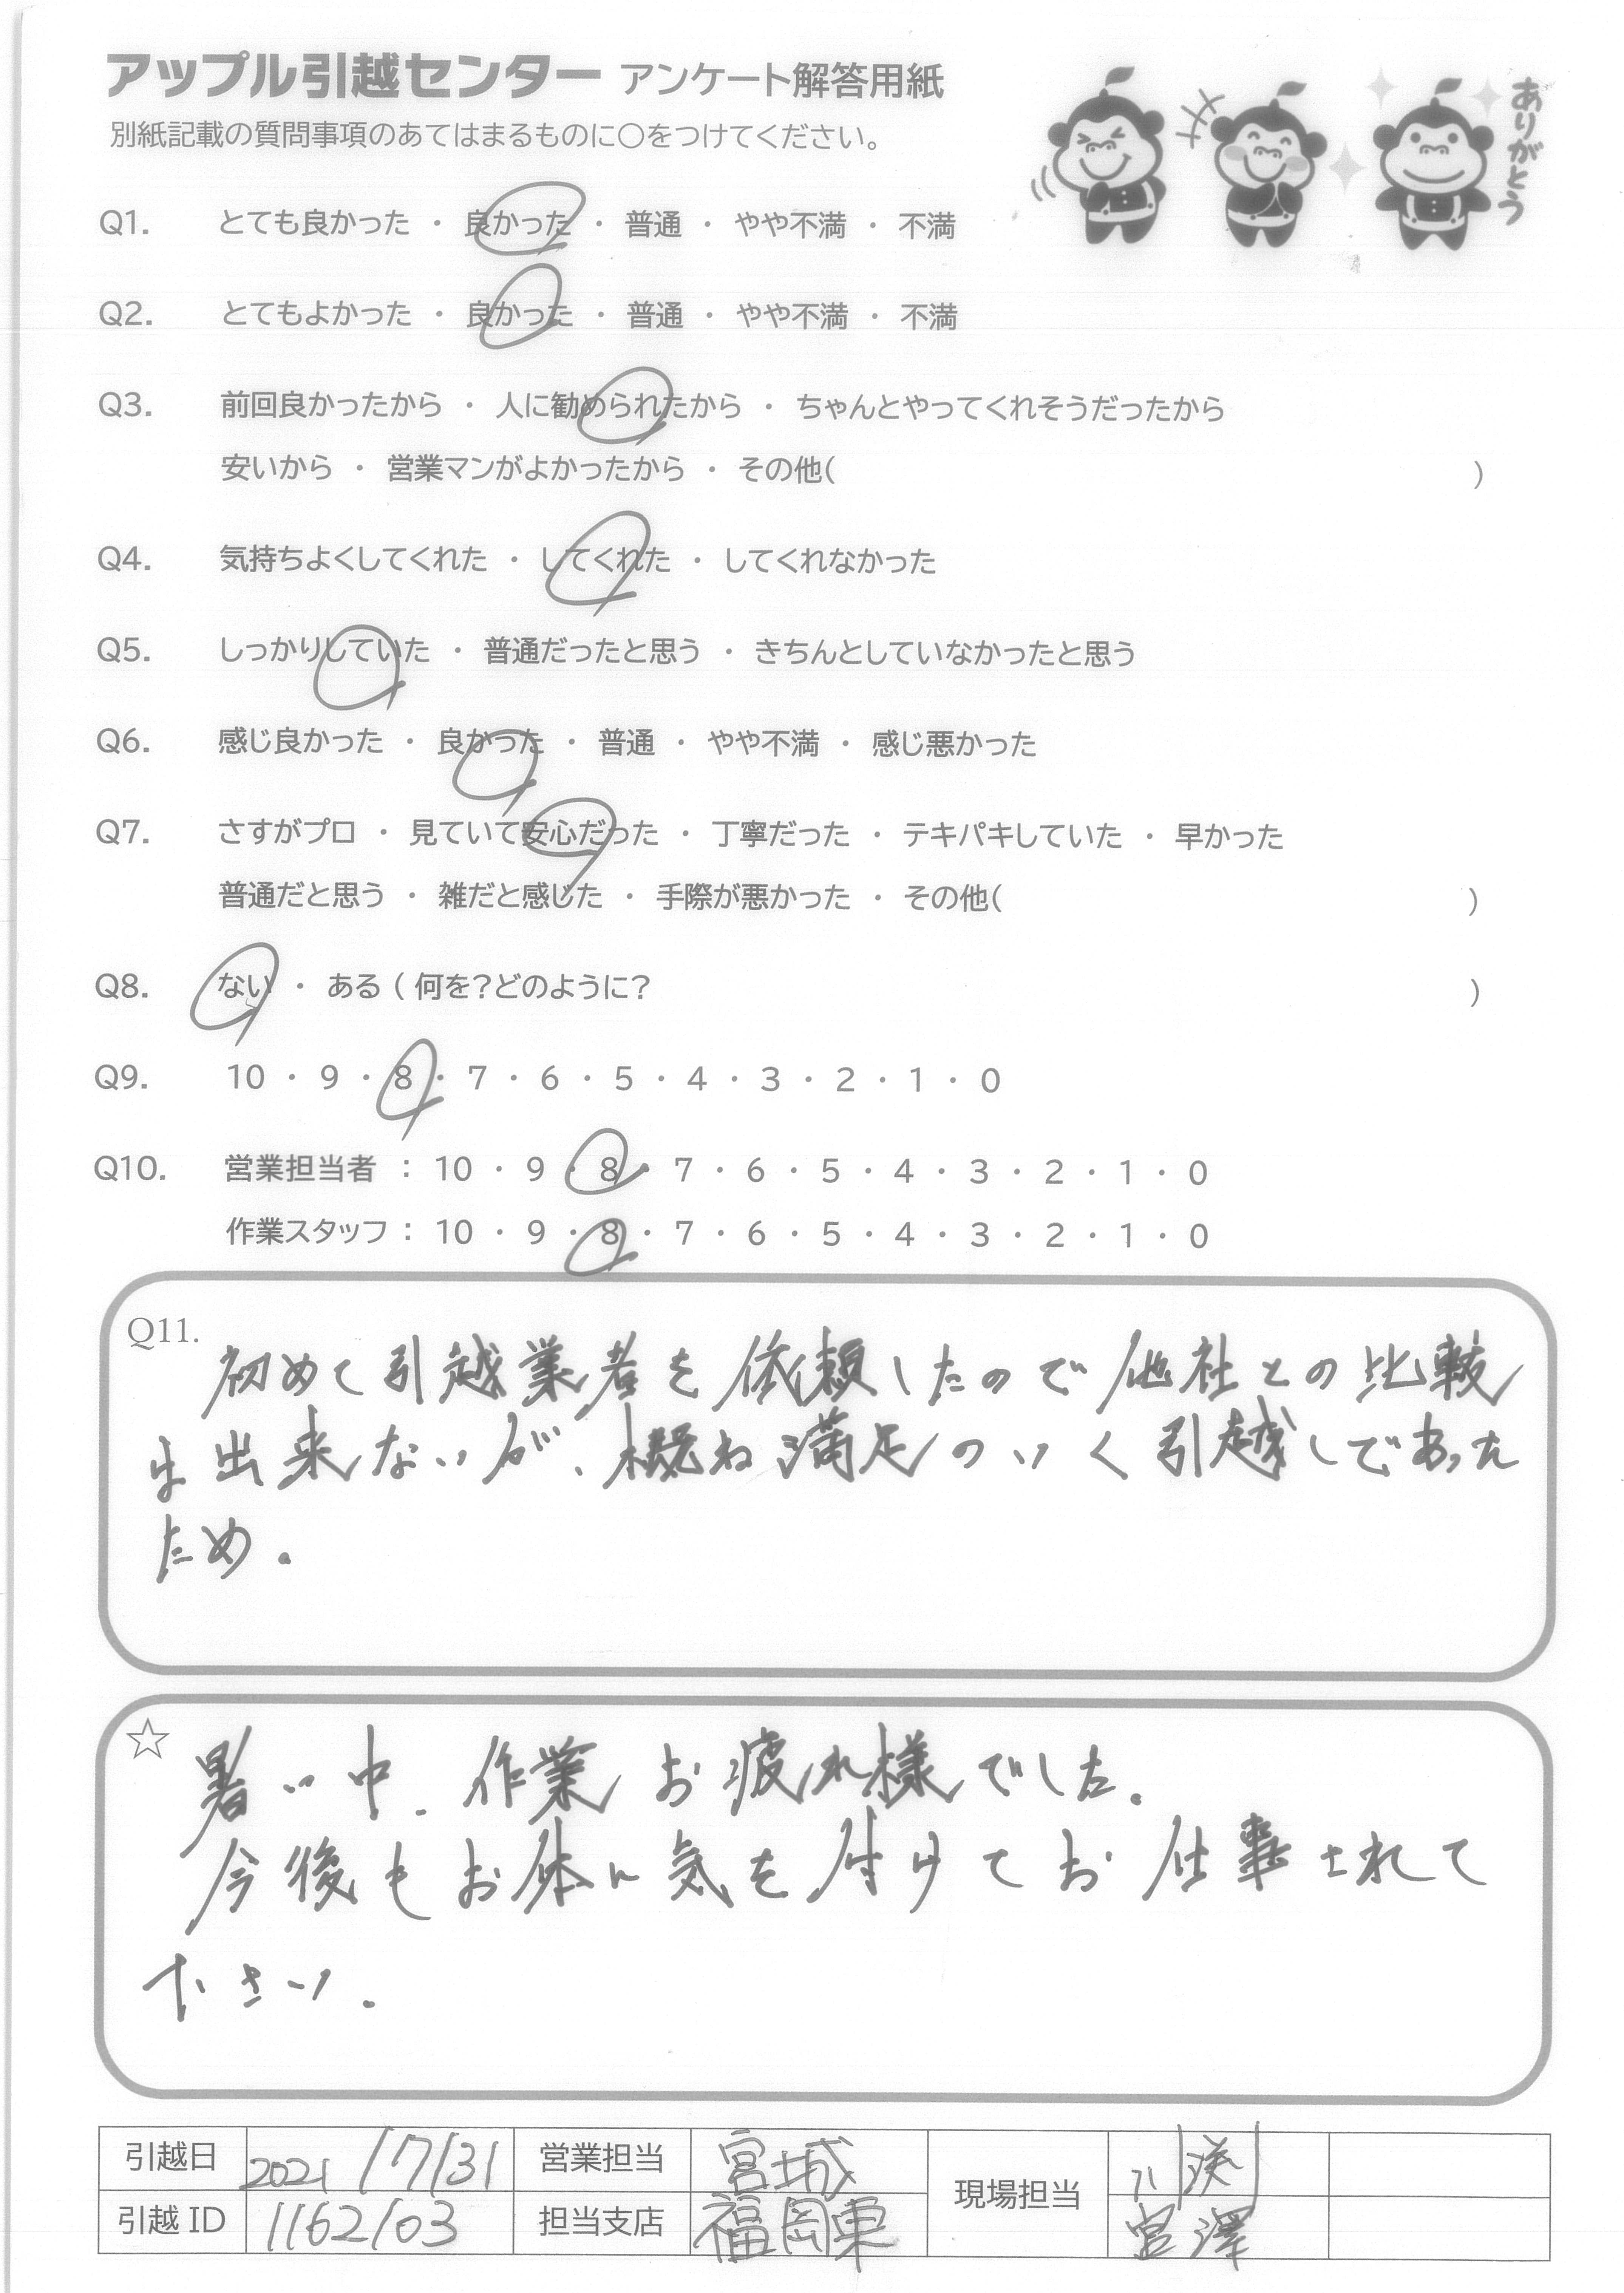 アップル引越センター アンケート解答用紙
別紙記載の質問事項のあてはまるものに○をつけてください。
ありがとう
Q1. とても良かった ・ 良かった ・ 普通 ・ やや不満 ・ 不満
Q2. とてもよかった ・ 良かった ・ 普通 ・ やや不満 ・ 不満
Q3. 前回良かったから ・ 人に勧められたから ・ ちゃんとやってくれそうだったから
安いから ・ 営業マンがよかったから ・ その他( )
Q4. 気持ちよくしてくれた ・ してくれた ・ してくれなかった
Q5. しっかりしていた ・ 普通だったと思う ・ きちんとしていなかったと思う
Q6. 感じ良かった ・ 良かった ・ 普通 ・ やや不満 ・ 感じ悪かった
Q7. さすがプロ ・ 見ていて安心だった ・ 丁寧だった ・ テキパキしていた ・ 早かった
普通だと思う ・ 雑だと感じた ・ 手際が悪かった ・ その他( )
Q8. ない ・ ある ( 何を?どのように? )
Q9. 10 ・ 9 ・ 8 ・ 7 ・ 6 ・ 5 ・ 4 ・ 3 ・ 2 ・ 1 ・ 0
Q10. 営業担当者 : 10 ・ 9 ・ 8 ・ 7 ・ 6 ・ 5 ・ 4 ・ 3 ・ 2 ・ 1 ・ 0
作業スタッフ : 10 ・ 9 ・ 8 ・ 7 ・ 6 ・ 5 ・ 4 ・ 3 ・ 2 ・ 1 ・ 0
Q11.
初めて引越業者を依頼したので他社との比較
は出来ないが、概ね満足のいく引越しであった
ため。
☆
暑い中、作業お疲れ様でした。
今後もお体に気を付けてお仕事されて
下さい。
引越日 2021/7/31 営業担当 宮城 現場担当
引越ID 1162103 担当支店 福岡東 宮澤